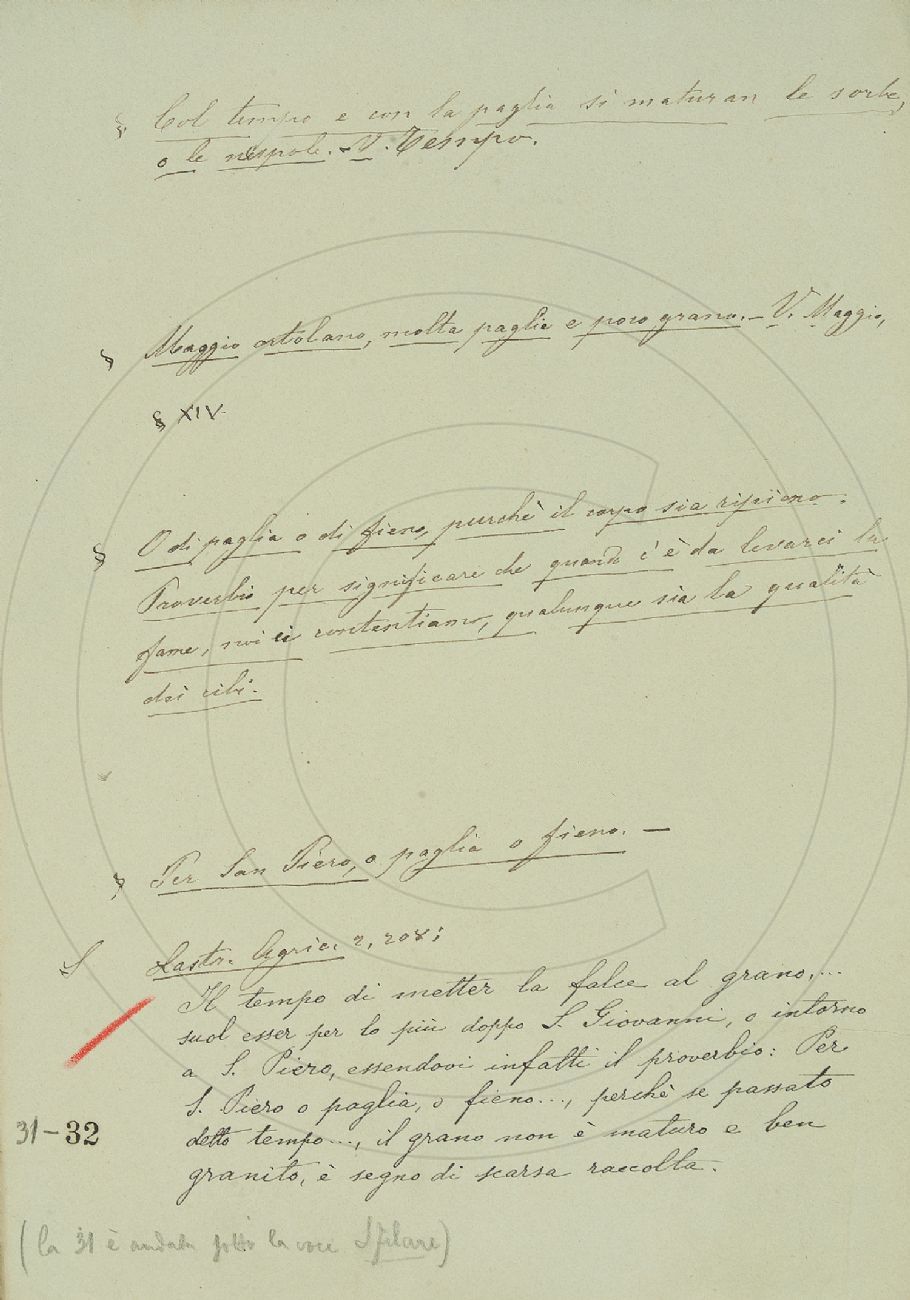 § Col tempo e con la paglia si maturan le sorbe,
o le nespole. - V. Tempo.
§ Maggio ortolano, molta paglia e poco grano. - V. Maggio,
§ XIV.
§ O di paglia o di fieno, purchè il corpo sia ripieno.
Proverbio per significare che quando c'è da levarci la
fame, noi ci contentiamo, qualunque sia la qualità
dei cibi.
§ Per San Piero, o paglia o fieno. —
Lastr. Agric. 2, 208:
Il tempo di metter la falce al grano,...
suol esser per lo più doppo S. Giovanni, o intorno
a S. Piero, essendovi infatti il proverbio: Per
S. Piero o paglia, o fieno..., perchè se passato
detto tempo..., il grano non è maturo e ben
31-32
granito, è segno di scarsa raccolta.
(la 31 è andata sotto la voce Sfilare)